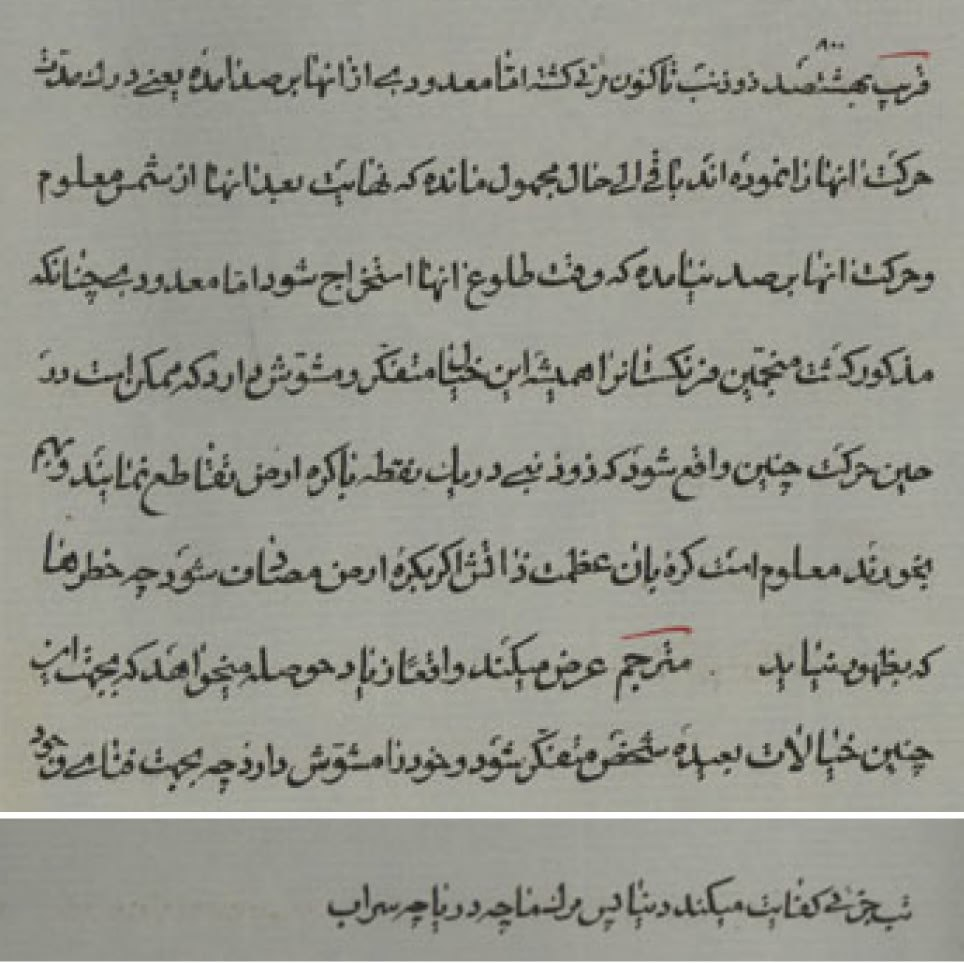 ۸۰۰
قریب بهشتصد ذوذنب تاکنون مرئی کشته امّا معدودی از انها برصد نامده یعنی درک مدّت
حرکت انها را نموده اند باقی الی حال مجهول مانده که نهایت بعد انها از شمس معلوم
و حرکت انها برصد نیامده که وقت طلوع انها استخراج شود امّا معدودی چنانکه
مذکور کشت منجّمین فرنکستانرا همیشه این خیال متفکّر و مشوّش دارد که ممکن است در
حین حرکت چنین واقع شود که ذوذنبی در یک نقطه باکره ارض تقاطع نمایند و بهم
بخورند معلوم است کرهٔ بان عظمت ذاتش اکر بکرهٔ ارض مصادف شود چه خطرها
که بظهور نیاید مترجم عرض میکند واقعاً زیاد حوصله میخواهد که بجهت این
چنین خیالات بعیده شخص متفکّر شود و خود را مشوّش دارد چه بجهت فنای وجود
تب جزئی کفایت میکند دنیا پس مرك ما چه دریا چه سراب